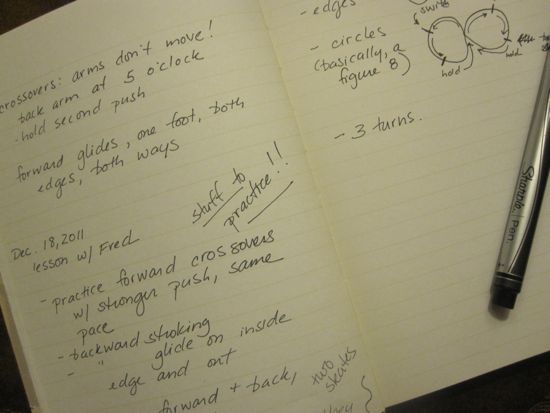 crossovers: arms don't move!
back arm at 5 o'clock
- hold second push
forward glides, one foot, both
edges, both ways
stuff to
practice!!
Dec. 18, 2011
lesson w/ Fred
- practice forward crossovers
w/ stronger push, same
pace
- backward stroking
- " glide on inside
edge and out
forward + back,
two
skates
- edges
- circles
(basically, a
figure 8)
switch
hold
hold
- 3 turns.
Sharpie Pen